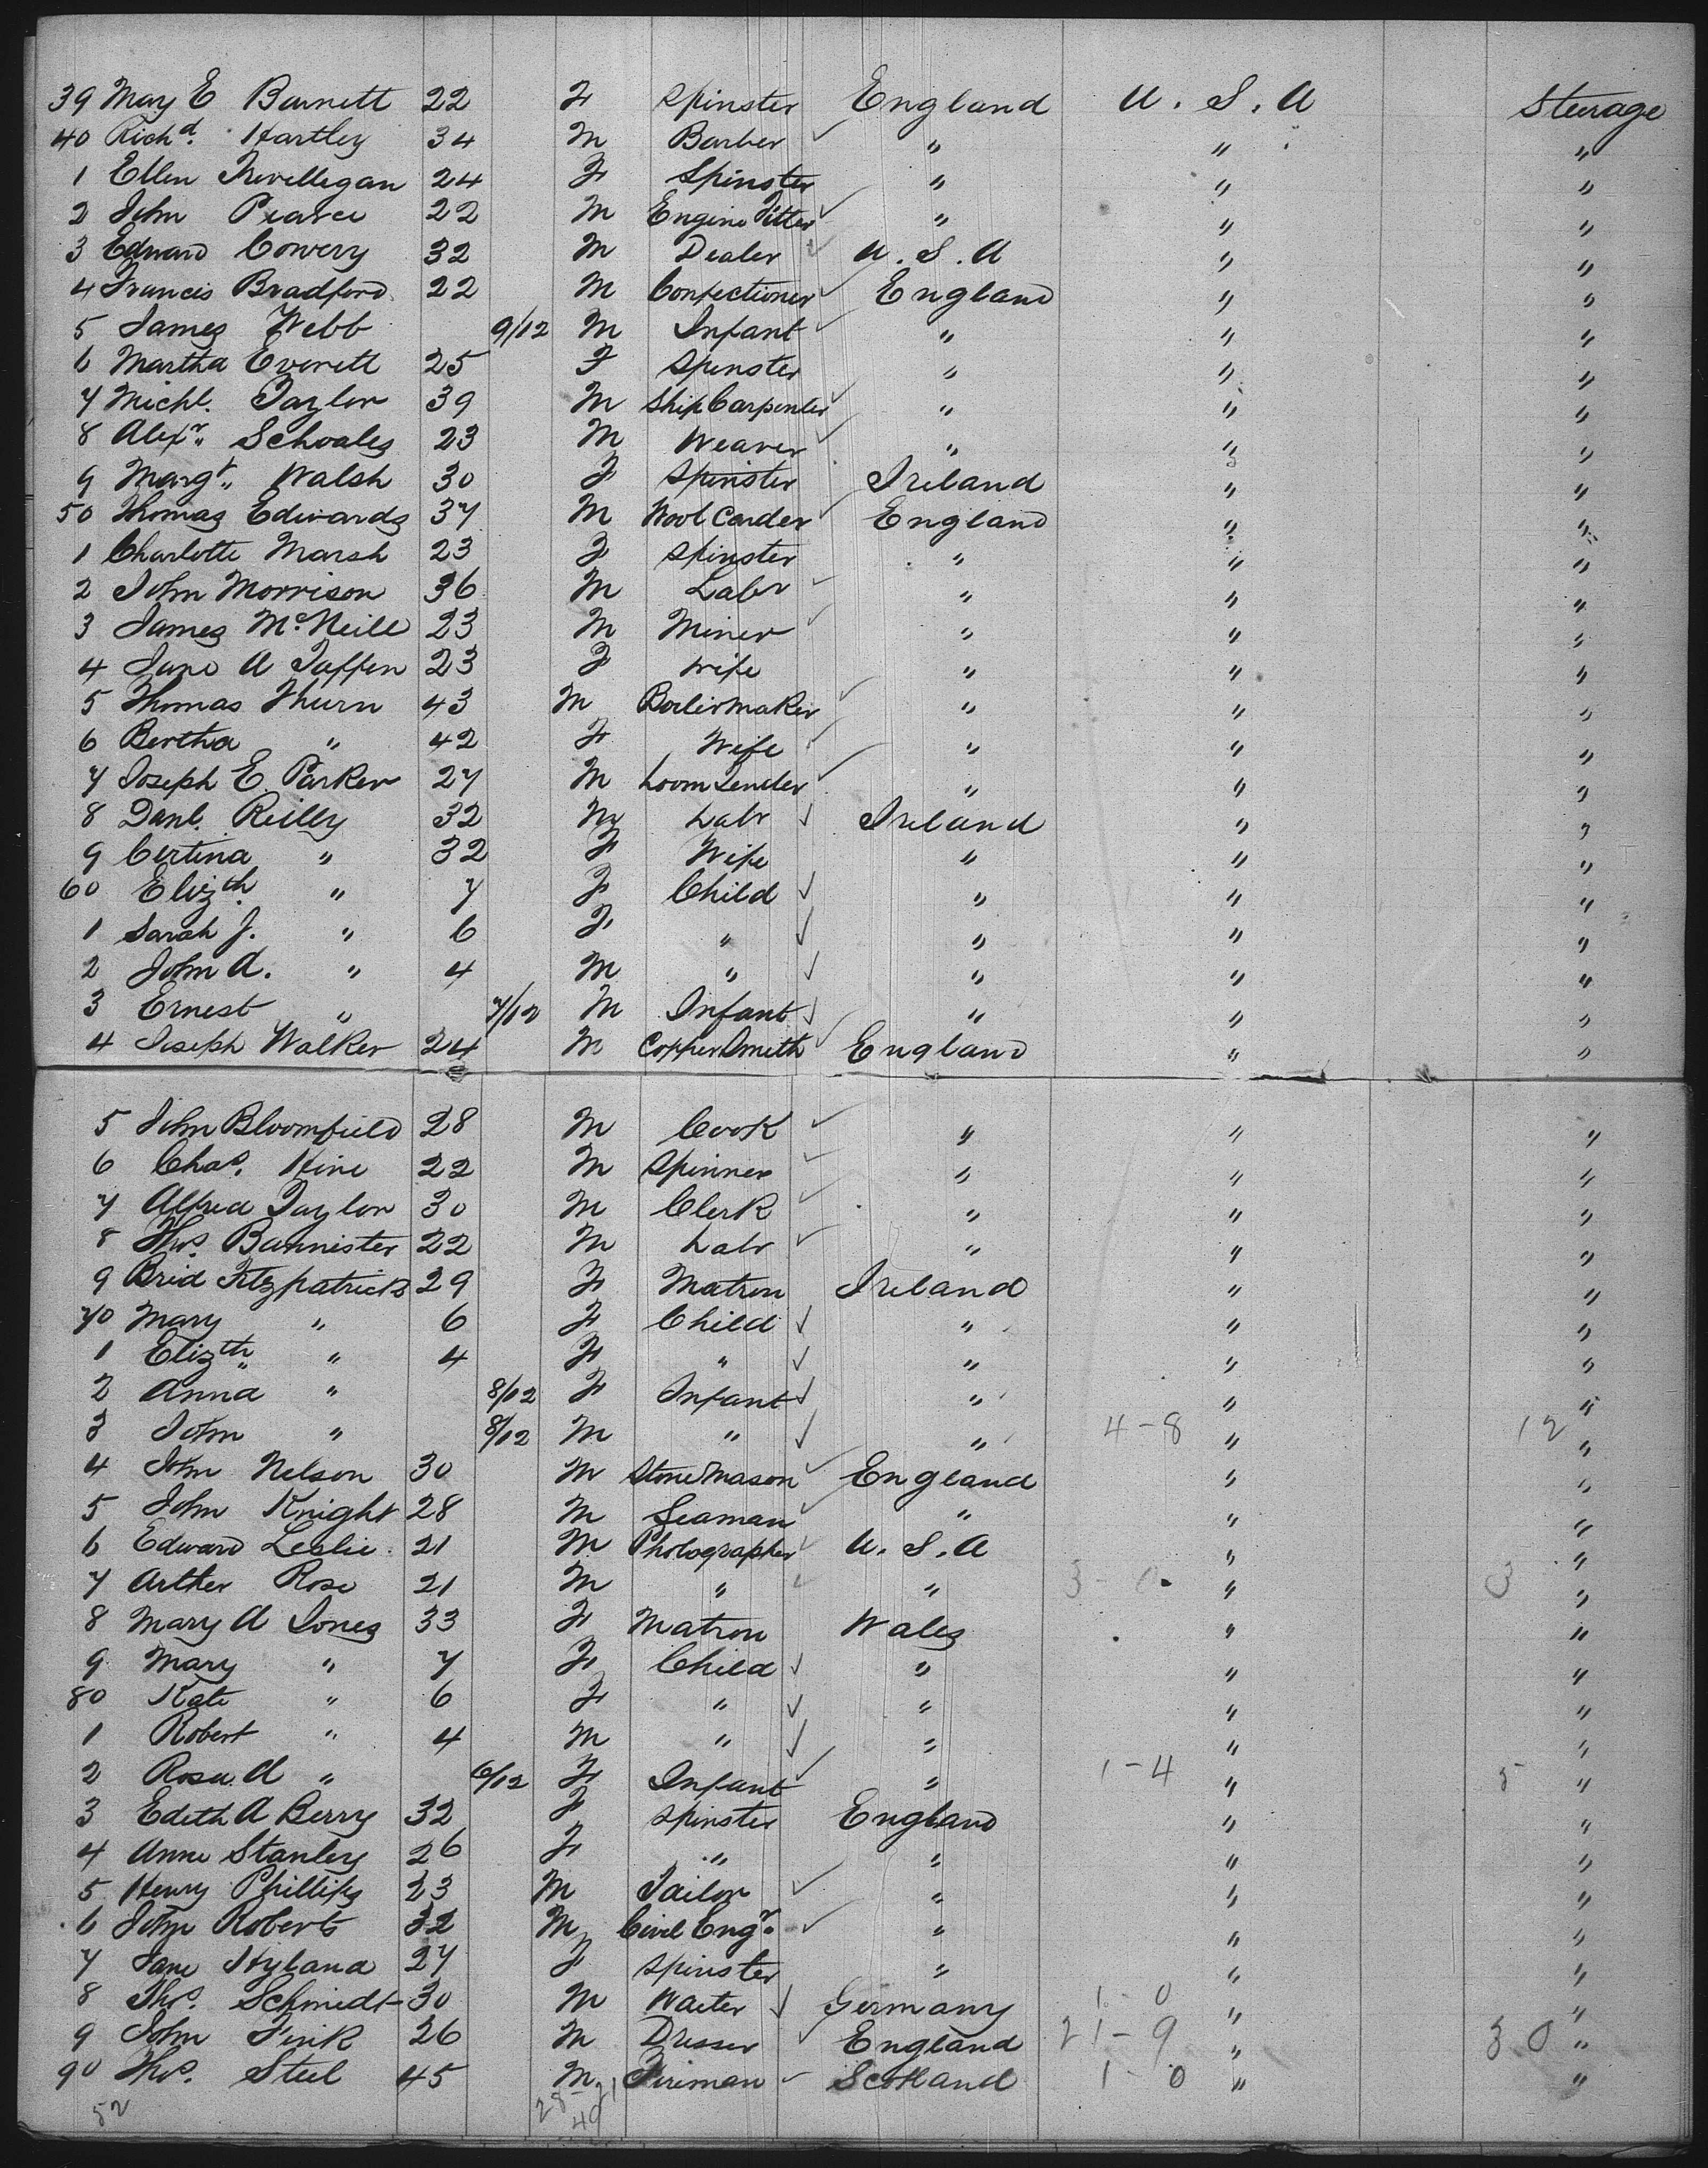 39 May E Barnett 22 F Spinster England U.S.A Steerage
40 Richd. Hartley 34 M Barber ✓ " " "
1 Ellen Trevellegan 24 F Spinster " " "
2 John Pearce 22 M Engine Fitter ✓ " " "
3 Edward Cowery 32 M Dealer ✓ U.S.A " "
4 Francis Bradford 22 M Confectioner ✓ England " "
5 James Webb 9/12 M Infant ✓ " " "
6 Martha Everett 25 F Spinster " " "
7 Michl. Taylor 39 M Ship Carpenter ✓ " " "
8 Alexr. Schoales 23 M Weaver ✓ " " "
9 Margt. Walsh 30 F Spinster Ireland " "
50 Thomas Edwards 37 M Wool Carder ✓ England " "
1 Charlotte Marsh 23 F Spinster " " "
2 John Morrison 36 M Labr ✓ " " "
3 James McNeill 23 M Miner ✓ " " "
4 Jane A Taffen 23 F Wife " " "
5 Thomas Thurn 43 M Boilermaker ✓ " " "
6 Bertha " 42 F Wife ✓ " " "
7 Joseph E. Parker 27 M Loom Tender ✓ " " "
8 Danl. Reilly 32 M Labr ✓ Ireland " "
9 Certina " 32 F Wife " " "
60 Elizth. " 7 F Child ✓ " " "
1 Sarah J. " 6 F " ✓ " " "
2 John A. " 4 M " ✓ " " "
3 Ernest " 7/12 M Infant ✓ " " "
4 Joseph Walker 24 M Copper Smith ✓ England " "
5 John Bloomfield 28 M Cook ✓ " " "
6 Chas. Hine 22 M Spinner ✓ " " "
7 Alfred Taylor 30 M Clerk ✓ " " "
8 Thos. Bannister 22 M Labr ✓ " " "
9 Brid Fitzpatrick 29 F Matron Ireland " "
70 Mary " 6 F Child ✓ " " "
1 Elizth. " 4 F " ✓ " " "
2 Anna " 8/12 F Infant ✓ " " "
3 John " 8/12 M " ✓ " 4-8 " 12 "
4 John Nelson 30 M Stone Mason ✓ England " "
5 John Knight 28 M Seaman ✓ " " "
6 Edward Leslie 21 M Photographer ✓ U.S.A " "
7 Arther Rose 21 M " ✓ " 3-0 " 3 "
8 Mary A Jones 33 F Matron Wales " "
9 Mary " 7 F Child ✓ " " "
80 Kate " 6 F " ✓ " " "
1 Robert " 4 M " ✓ " " "
2 Rosa A " 6/12 F Infant ✓ " 1-4 " 5 "
3 Edith A Berry 32 F Spinster England " "
4 Anne Stanley 26 F " " " "
5 Henry Phillips 23 M Tailor ✓ " " "
6 John Roberts 32 M Civil Engr. ✓ " " "
7 Jane Hyland 27 F Spinster " " "
8 Thos. Schmidt 30 M Waiter ✓ Germany 1-0 " "
9 John Fink 26 M Dresser ✓ England 21-9 " 30 "
90 Thos. Steel 45 M Fireman ✓ Scotland 1-0 " "
52 28-21
40